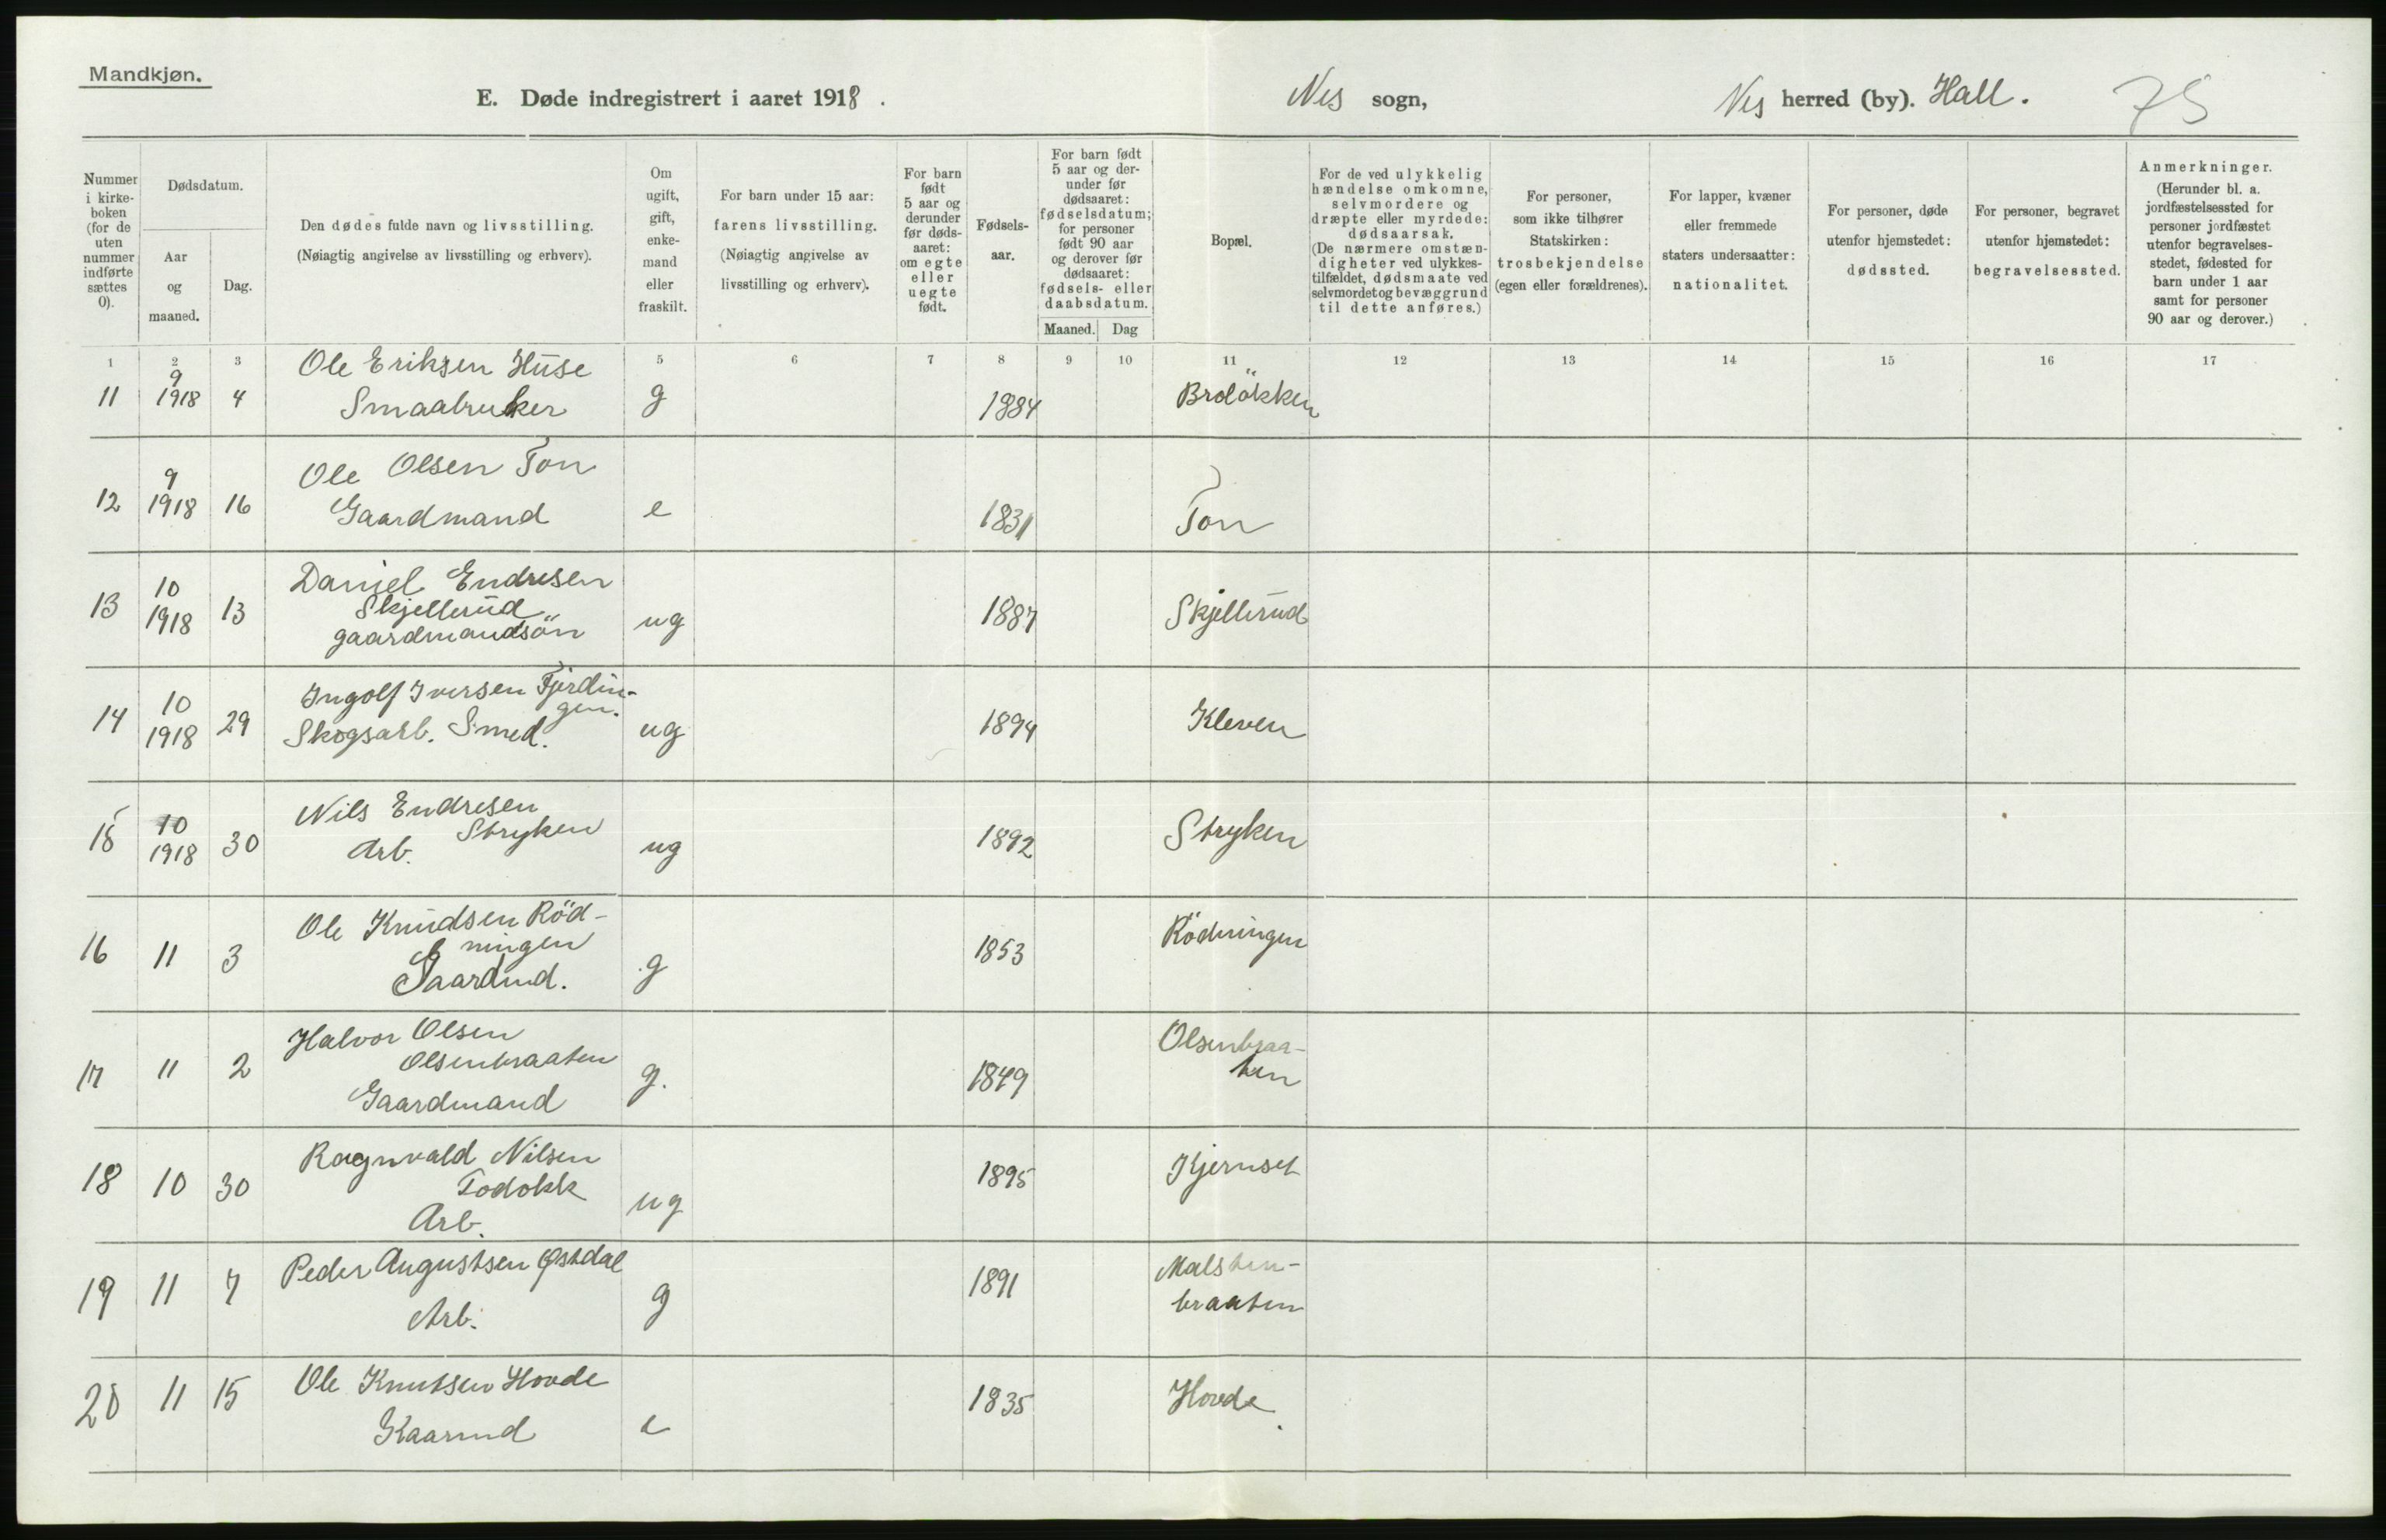 Mandkjøn.
E. Døde indregistrert i aaret 1918. Nes sogn, Nes herred (by). Hall. 75
Nummer i kirke-boken (for de uten nummer indførte sættes 0).
Dødsdatum.
Aar og maaned.
Dag.
Den dødes fulde navn og livsstilling.
(Nøiagtig angivelse av livsstilling og erhverv).
Om ugift, gift, enke-mand eller fraskilt.
For barn under 15 aar: farens livsstilling.
(Nøiagtig angivelse av livsstilling og erhverv).
For barn født 5 aar og derunder før døds-aaret: om egte eller uegte født.
Fødsels-aar.
For barn født 5 aar og der-under før dødsaaret: fødselsdatum; for personer født 90 aar og derover før dødsaaret: fødsels- eller daabsdatum.
Maaned. Dag
Bopæl.
For de ved ulykkelig hændelse omkomne, selvmordere og dræpte eller myrdede: dødsaarsak.
(De nærmere omstæn-digheter ved ulykkes-tilfældet, dødsmaate ved selvmordet og bevæggrund til dette anføres.)
For personer, som ikke tilhører Statskirken: trosbekjendelse (egen eller forældrenes).
For lapper, kvæner eller fremmede staters undersaatter: nationalitet.
For personer, døde utenfor hjemstedet: dødssted.
For personer, begravet utenfor hjemstedet: begravelsessted.
Anmerkninger.
(Herunder bl. a. jordfæstelsessted for personer jordfæstet utenfor begravelses-stedet, fødested for barn under 1 aar samt for personer 90 aar og derover.)
1 2 3 5 6 7 8 9 10 11 12 13 14 15 16 17
9 Ole Eriksen Huse
11 1918 4 Smaabruker g 1884 Broløkken
9 Ole Olsen Ton
12 1918 16 Gaardmand e 1831 Ton
10 Daniel Endresen
13 1918 13 Skjellerud ug 1887 Skjellerud
gaardmandsön
10 Ingolf Iversen Fjerdin-
gen.
14 1918 29 Skogsarb. Smed. ug 1894 Kleven
10 Nils Endresen
Stryken
15 1918 30 Arb. ug 1892 Stryken
Ole Knudsen Röd-
16 11 3 ningen g 1853 Rödningen
Gaardmd.
Halvor Olsen Olsenbraa-
17 11 2 Olsenbraaten g. 1849 ten
Gaardmand
Ragnvald Nilsen
18 10 30 Todokk ug 1895 Kjernset
Arb.
Peder Augustsen Østdal Malsten-
19 11 7 Arb. g 1891 braaten
Ole Knutsen Hovde
20 11 15 e 1835 Hovde